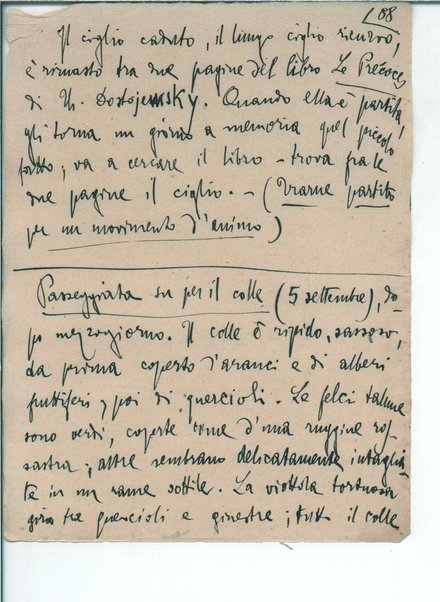 188
Il ciglio caduto, il lungo ciglio ricurvo,
è rimasto tra due pagine del libro Le Précoces
di Th. Dostojewsky. Quando ella è partita,
gli torna un giorno a memoria quel piccolo
fatto; va a cercare il libro – trova fra le
due pagine il ciglio. – (Trarne partito
per un movimento d'animo)
Passeggiata su per il colle (5 settembre), do-
po mezzogiorno. Il colle è ripido, sassoso,
da prima coperto d'aranci e di alberi
fruttiferi, poi di quercioli. Le felci talune
sono verdi, coperte come d'una ruggine ros-
sastra; altre sembrano delicatamente intaglia-
te in un rame sottile. La viottola tortuosa
gira tra quercioli e ginestre; tutto il colle